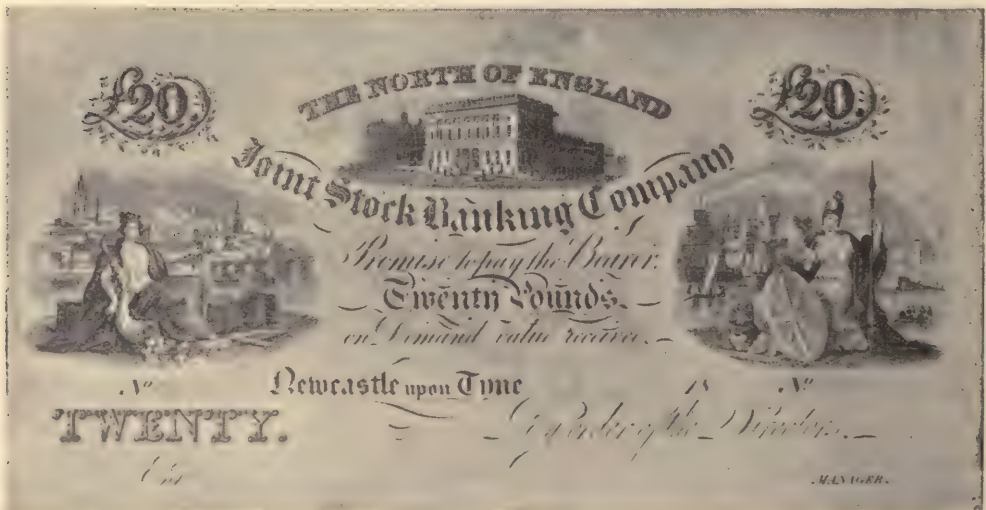 £20. £20.
THE NORTH OF ENGLAND
Joint Stock Banking Company
Promise to pay the Bearer
Twenty Pounds
on Demand value received
No Newcastle upon Tyne 18 No
TWENTY. By order of the Directors
MANAGER.